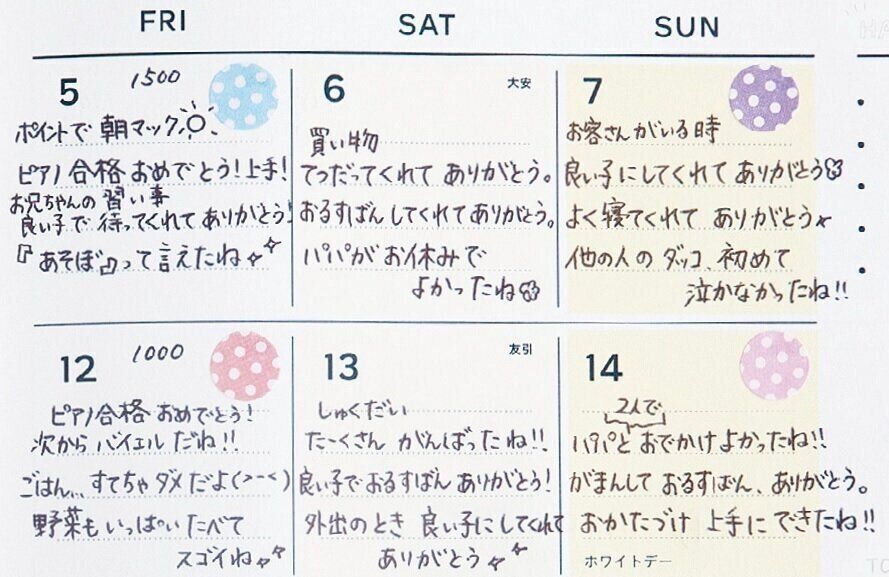 FRI
SAT
SUN
5
1500
ポイントで 朝マック
ピアノ 合格 おめでとう!上手!
お兄ちゃんの 習い事
良い子で 待ってくれて ありがとう!
『あそぼ』って 言えたね
6
大安
買い物
てつだってくれて ありがとう。
おるすばん してくれて ありがとう。
パパが お休みで
よかったね
7
お客さんがいる時
良い子にしてくれて ありがとう
よく寝てくれて ありがとう
他の人の ダッコ、初めて
泣かなかったね!!
12
1000
ピアノ合格 おめでとう!
次から バイエル だね!!
ごはん... すてちゃ ダメだよ(>-<)
野菜も いっぱい たべて
スゴイね
13
友引
しゅくだい
たーくさん がんばったね!!
良い子で おるすばん ありがとう!
外出のとき 良い子にしてくれて
ありがとう
14
2人で
パパと おでかけ よかったね!!
がまんして おるすばん、ありがとう。
おかたづけ 上手に できたね!!
ホワイトデー